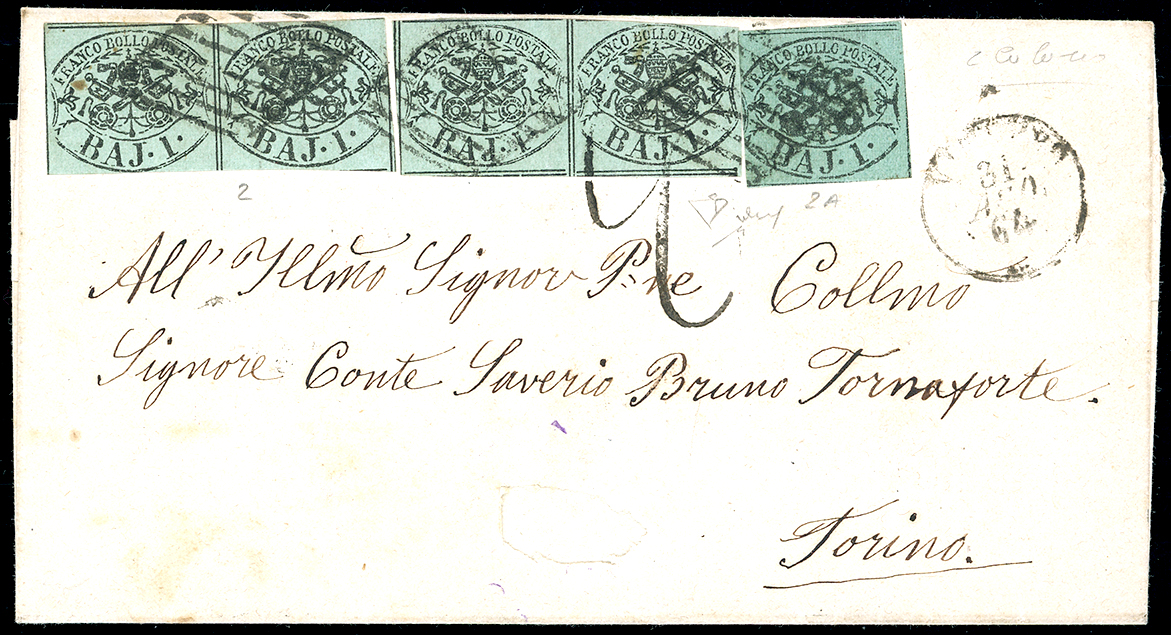 FRANCO BOLLO POSTALE
BAJ. 1.
FRANCO BOLLO POSTALE
BAJ. 1.
FRANCO BOLLO POSTALE
BAJ. 1.
FRANCO BOLLO POSTALE
BAJ. 1.
FRANCO BOLLO POSTALE
BAJ. 1.
2
2A
31
AGO.
64
All' Illmo Signor P.ne Collmo
Signore Conte Saverio Bruno Tornaforte.
Torino.